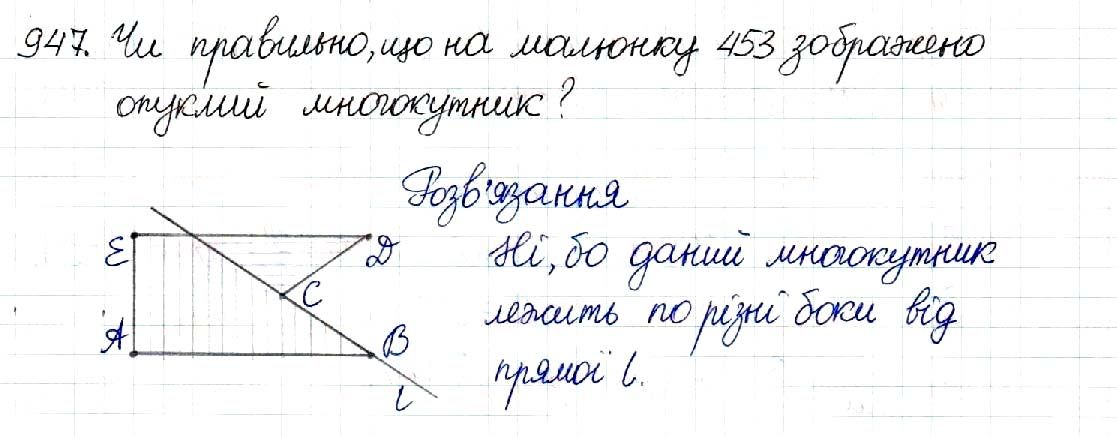 947. Чи правильно, що на малюнку 453 зображено
опуклий многокутник?
Розв'язання
E
D
C
A
B
l
Ні, бо даний многокутник
лежить по різні боки від
прямої l.